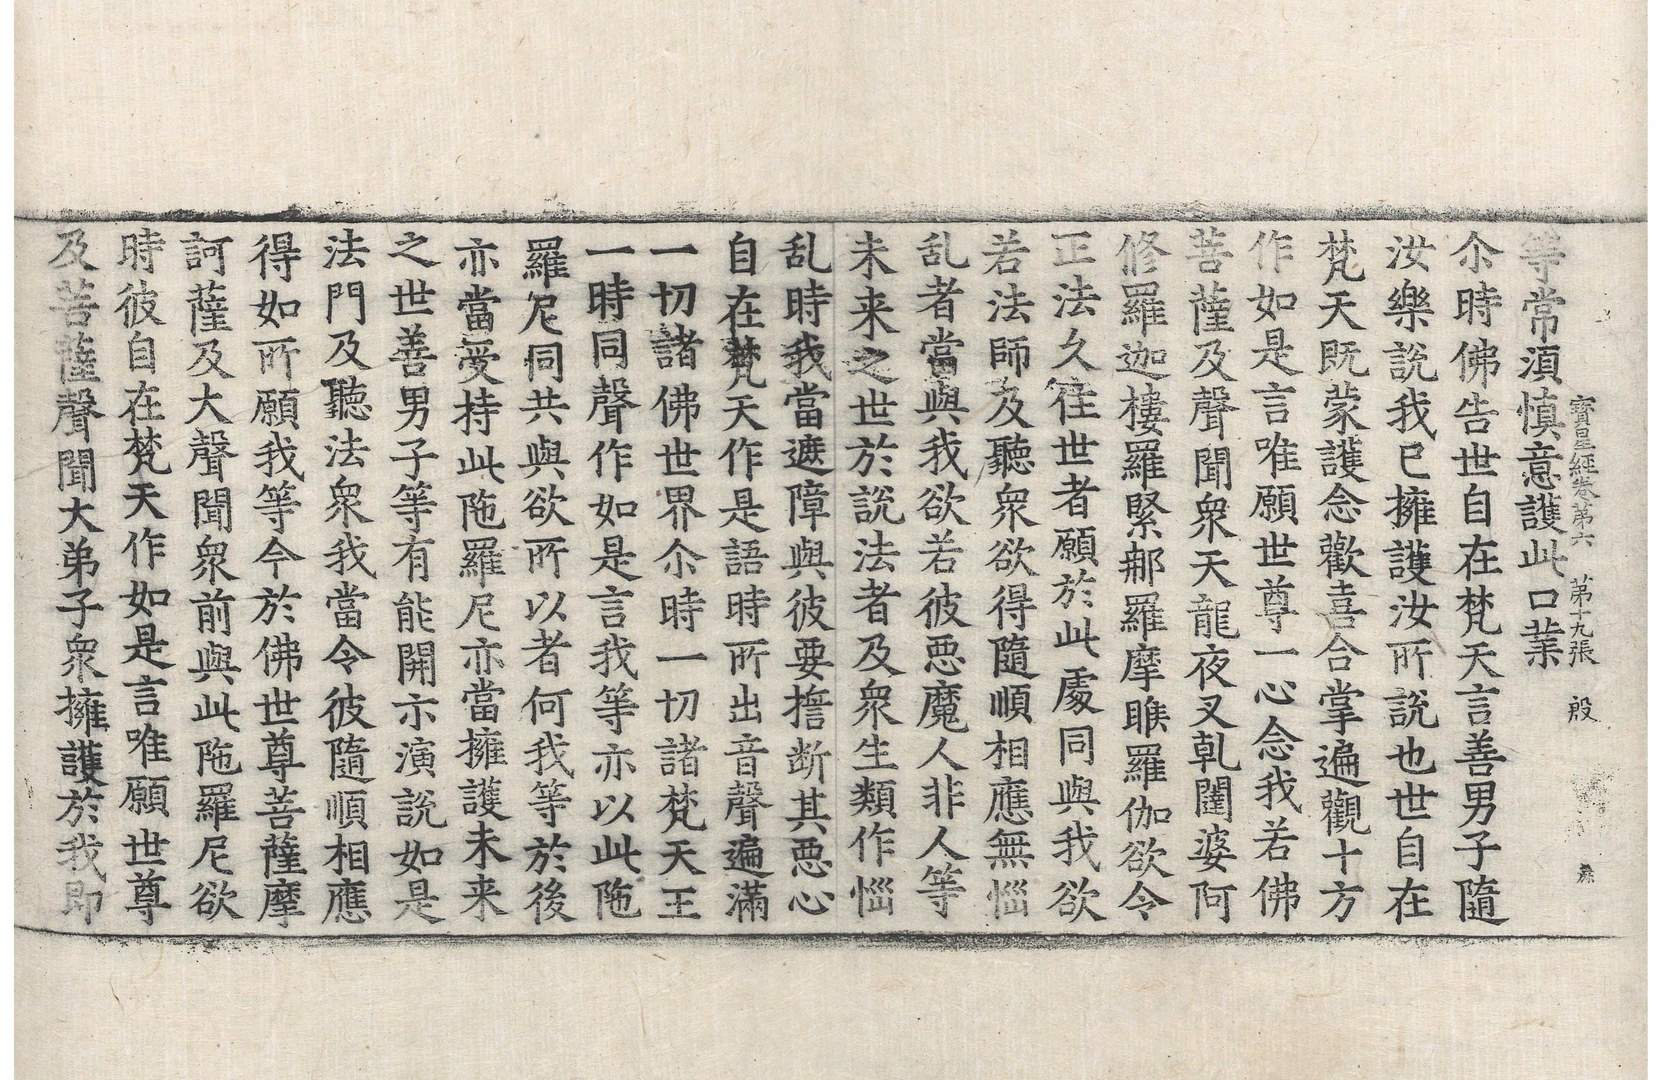 寶星經卷第六 第十九張 殷
等常湏慎意護此口業
尒時佛告世自在梵天言善男子隨
汝樂說我已擁護汝所說也世自在
梵天既蒙護念歡喜合掌遍觀十方
作如是言唯願世尊一心念我若佛
菩薩及聲聞衆天龍夜叉乹闥婆阿
修羅迦樓羅緊那羅摩睺羅伽欲令
正法久住世者願於此處同與我欲
若法師及聽衆欲得隨順相應無惱
乱者當與我欲若彼惡魔人非人等
未来之世於說法者及衆生類作惱
乱時我當遮障與彼要擔断其惡心
自在梵天作是語時所出音聲遍滿
一切諸佛世界尒時一切諸梵天王
一時同聲作如是言我等亦以此陁
羅尼同共與欲所以者何我等於後
亦當受持此陁羅尼亦當擁護未来
之世善男子等有能開示演說如是
法門及聽法衆我當令彼隨順相應
得如所願我等今於佛世尊菩薩摩
訶薩及大聲聞衆前與此陁羅尼欲
時彼自在梵天作如是言唯願世尊
及菩薩聲聞大弟子衆擁護於我即